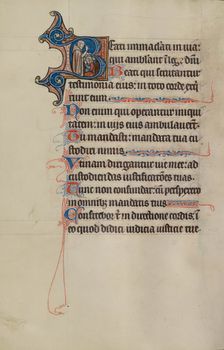 Beati immaculati in uia:
qui ambulant i lege dni
Beati qui scrutantur
testimonia eius: in toto corde exq
runt eum
Non enim qui operantur iniqui
tatem: in uijs eius ambulauert
Tu mandasti: mandata tua cu
stodiri nimis
Utinam dirigantur uie mee: ad
custodiendas iustificationes tuas
Tunc non confundar: cum perspexero
in omnibus mandatis tuis
Confitebor t in directione cordis: i
eo quod didici iudicia iusticie tue